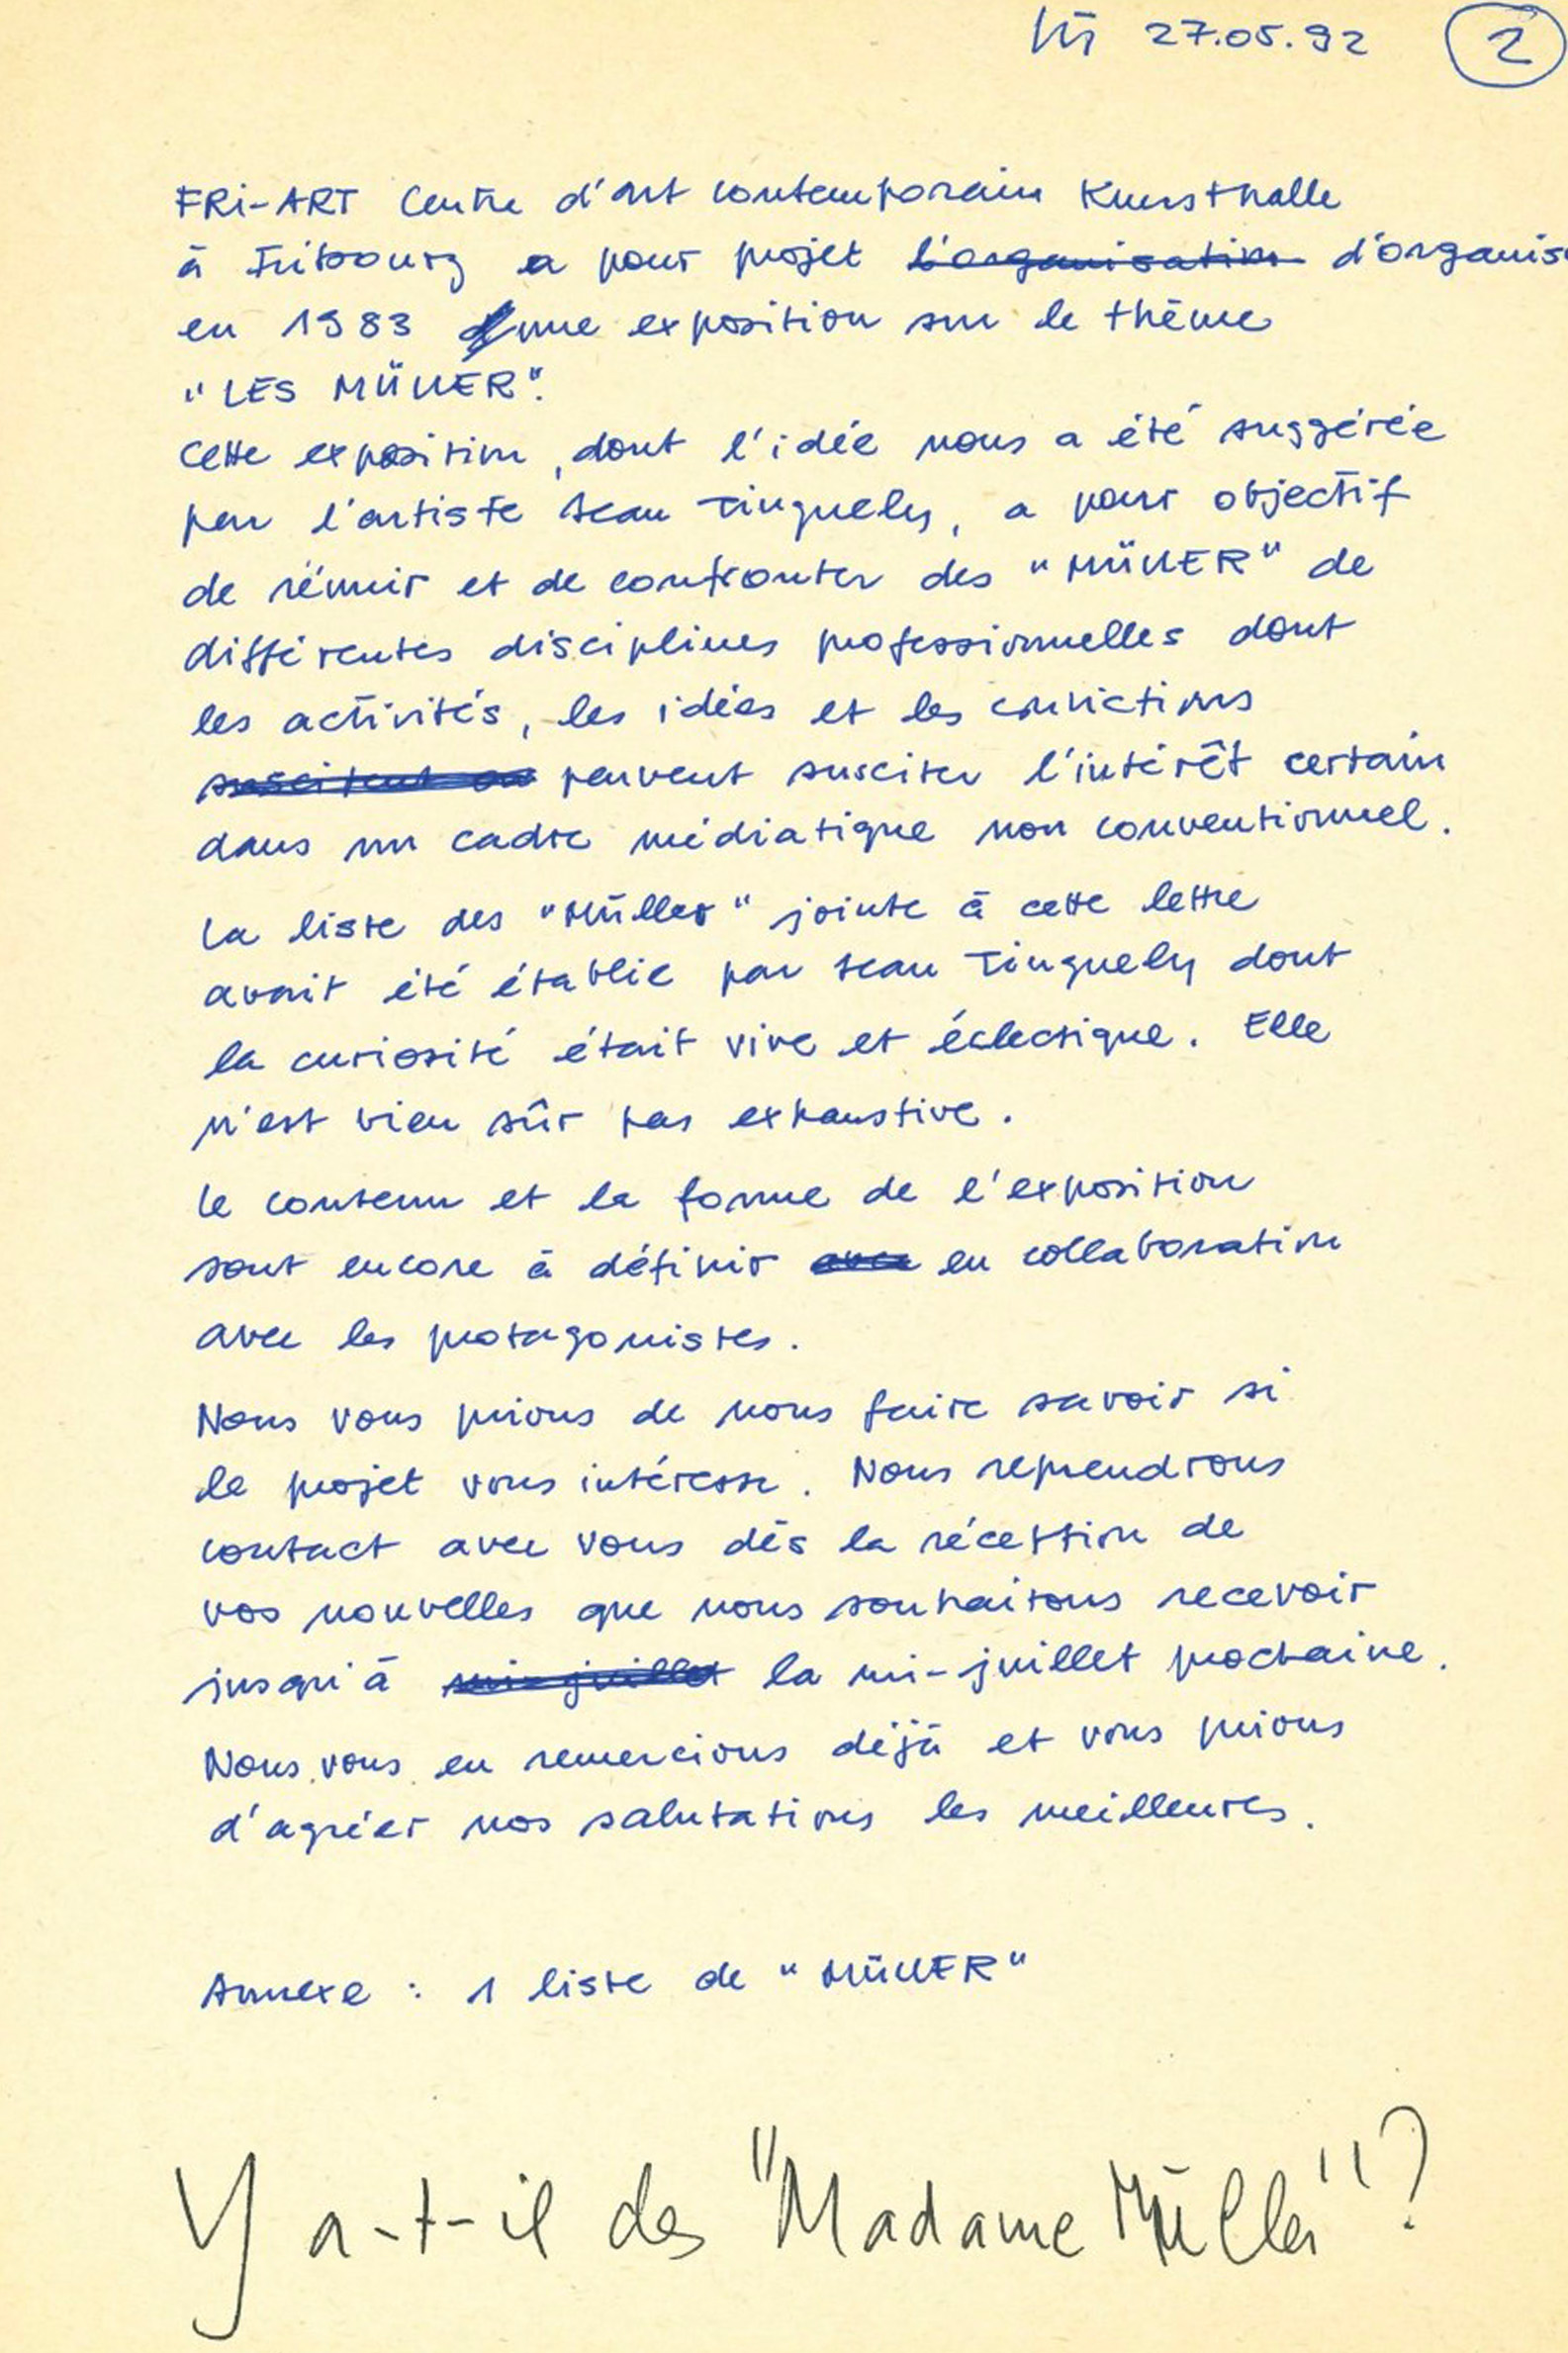 27.05.92 2
FRI-ART Centre d'art contemporain Kunsthalle
à Fribourg a pour projet l'organisation d'organis
en 1993 d'une exposition sur le thème
"LES MÜLLER".
Cette exposition, dont l'idée nous a été suggérée
par l'artiste Jean Tinguely, a pour objectif
de réunir et de confronter des "MÜLLER" de
différentes disciplines professionnelles dont
les activités, les idées et les convictions
suscitent peuvent susciter l'intérêt certain
dans un cadre médiatique non conventionnel.
La liste des "Müller" jointe à cette lettre
avait été établie par Jean Tinguely dont
la curiosité était vive et éclectique. Elle
n'est bien sûr pas exhaustive.
Le contenu et la forme de l'exposition
sont encore à définir avec en collaboration
avec les protagonistes.
Nous vous prions de nous faire savoir si
le projet vous intéresse. Nous reprendrons
contact avec vous dès la réception de
vos nouvelles que nous souhaitons recevoir
jusqu'à mi-juillet la mi-juillet prochaine.
Nous vous en remercions déjà et vous prions
d'agréer nos salutations les meilleures.
Annexe : 1 liste de "MÜLLER"
Y a-t-il des "Madame Müller"?